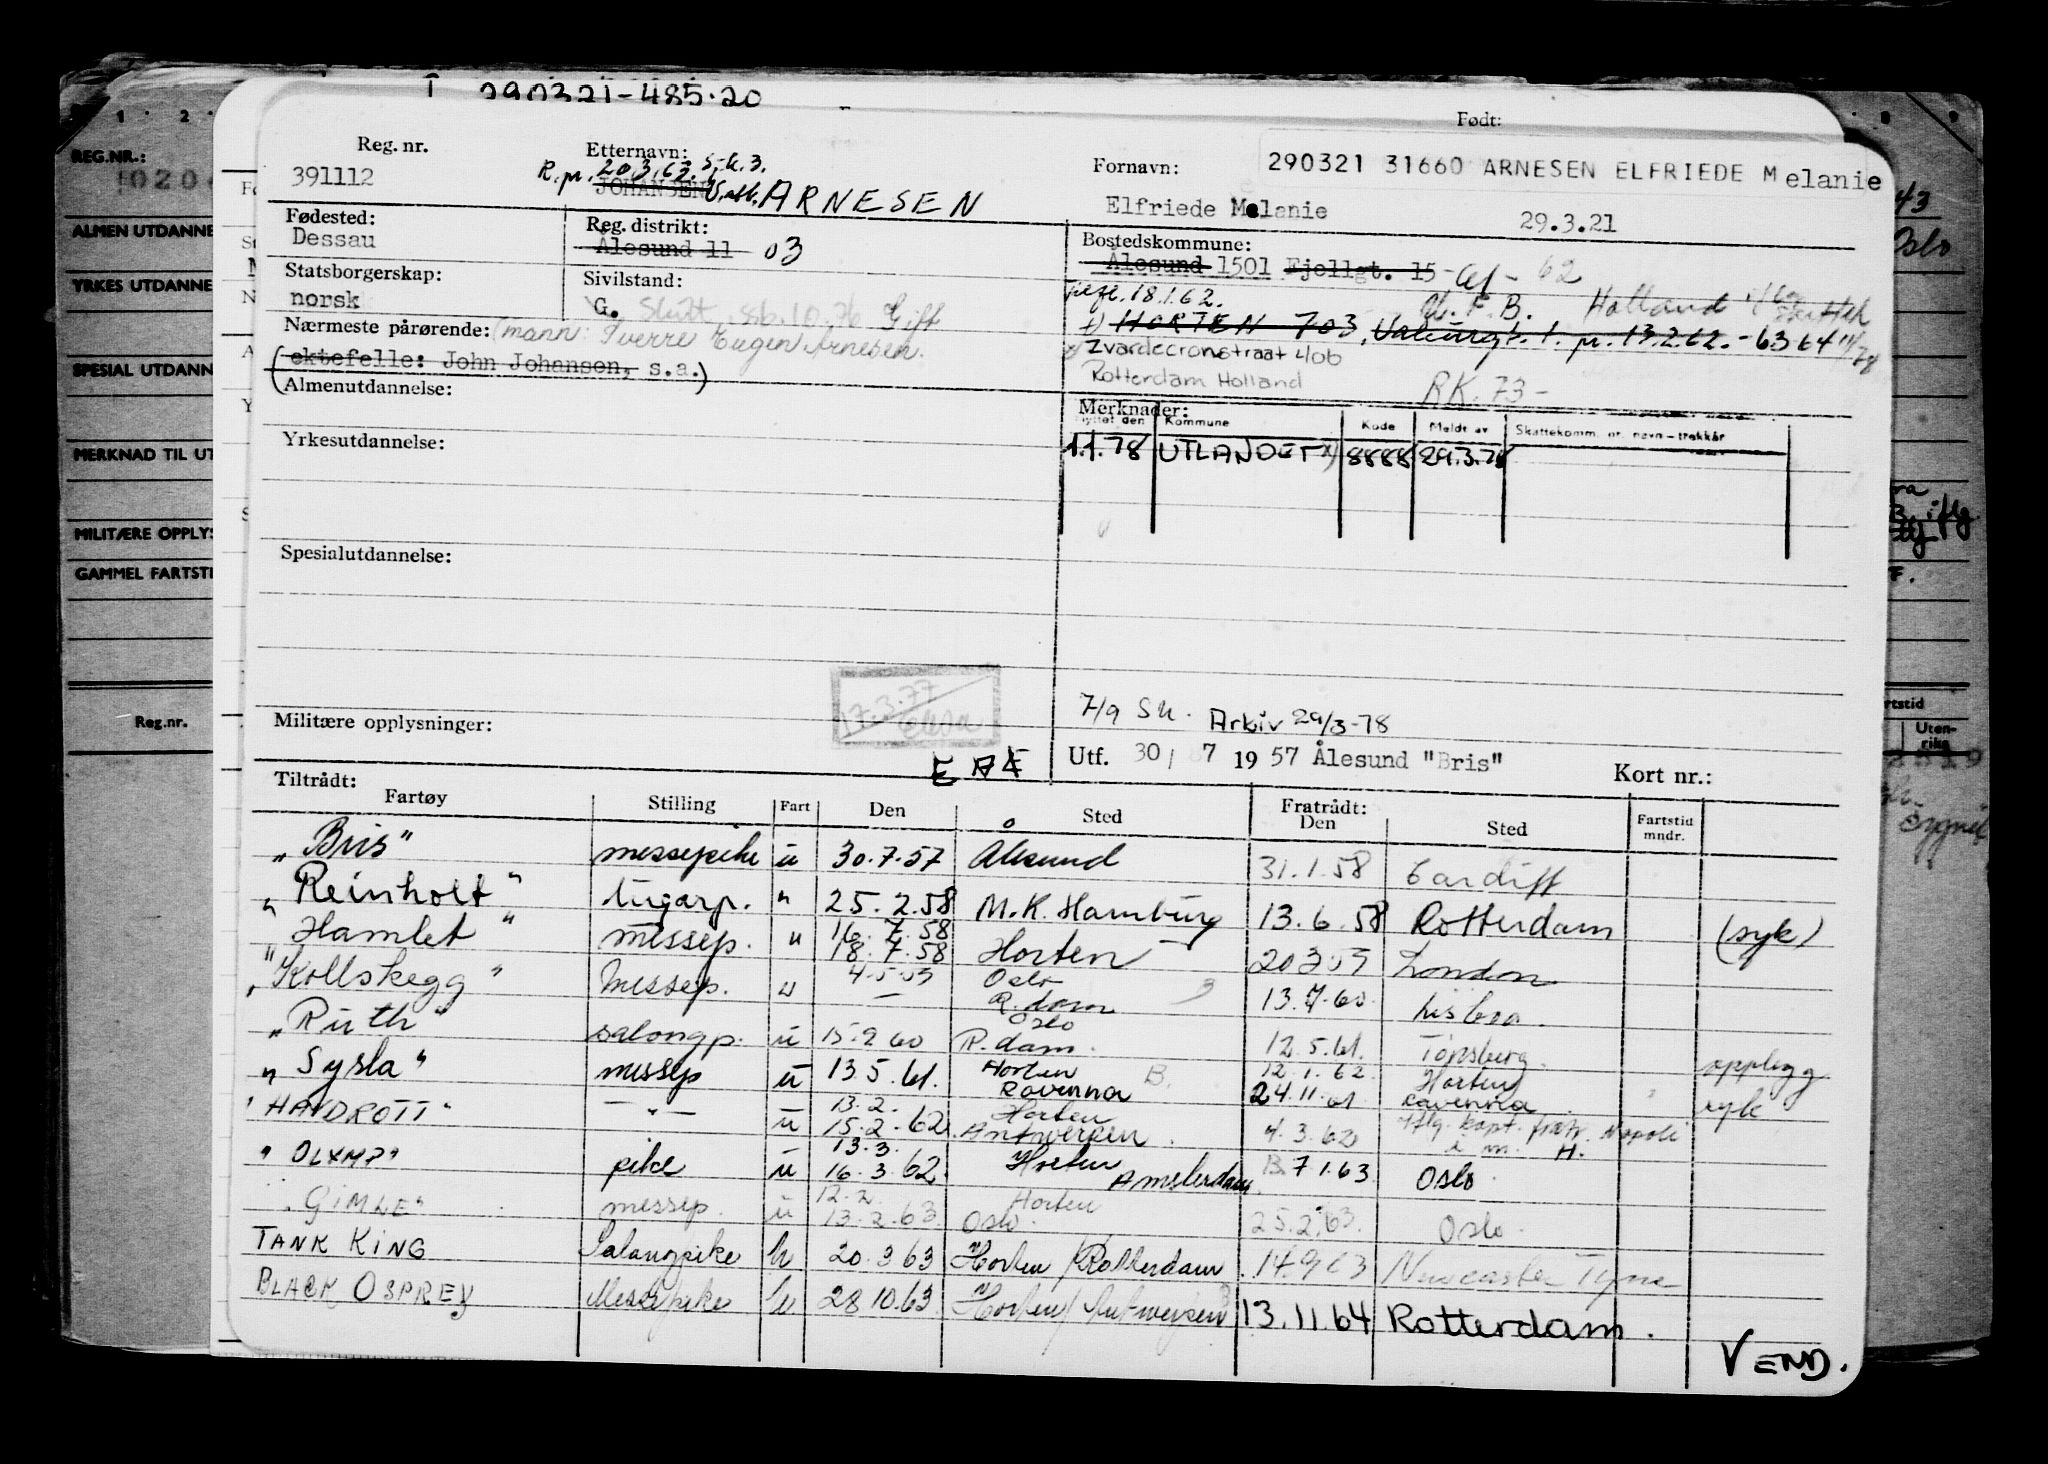 290321-485.20
Født:
Reg. nr.
391112
Etternavn:
R.pr. 20.3.63. s.k.3.
JOHANSEN ARNESEN
Fornavn:
290321 31660 ARNESEN ELFRIEDE Melanie
Elfriede Melanie
29.3.21
Fødested:
Dessau
Reg. distrikt:
Ålesund 11 03
Bostedskommune:
Ålesund 1501 Fjellgt. 15 - 62
Statsborgerskap:
norsk
Sivilstand:
G. Gift
18.1.62.
Holland
HORTEN 703, pr. 13.2.62. - 63 64
Nærmeste pårørende: (mann: Sverre Eugen Arnesen.
(ektefelle: John Johansen, s.a.)
Zvardecronstraat 40b
Rotterdam Holland
RK. 73-
Almenutdannelse:
Merknader:
Flyttet den Kommune Kode Meldt av Skattekomm. nr. navn-trekkår
1.1.78 UTLANDET x) 8888 29.3.78
Yrkesutdannelse:
Spesialutdannelse:
17.3.77
Militære opplysninger:
7/9 Sk. Arkiv 29/3-78
Utf. 30/ 7 1957 Ålesund "Bris"
Kort nr.:
Tiltrådt:
Fartøy Stilling Fart Den Sted Fratrådt: Den Sted Fartstid mndr.
"Bris" messepike u 30.7.57 Ålesund 31.1.58 Cardiff
"Reinholt" lugarp. " 25.2.58 M.K. Hamburg 13.6.58 Rotterdam (syk)
"Hamlet" messep. " 16.7.58 18.7.58 Horten London
"Kollskegg" messep. " Oslo R.dam 13.7.60 Lisboa.
"Ruth" salongp. u 15.9.60 Oslo R.dam. 12.5.61. Tønsberg. opplegg
"Sysla" messep u 13.5.61. Horten Ravenna 12.1.62 24.11.61 Horten Ravenna syk
"HAVDROTT" — " — u 13.2. 15.2.62 Horten Antwerpen. 4.3.62 Napoli
"OLYMP" pike u 13.3. 16.3.62. Horten Amsterdam 7.1.63 Oslo.
"GIMLE" messep. u 12.2. 13.2.63. Horten Oslo. 25.2.63. Oslo.
TANK KING Salongpike u 20.3.63 Horten/Rotterdam 14.9.63 Newcastle Tyne
BLACK OSPREY Messepike u 28.10.63 Horten/Antwerpen 13.11.64 Rotterdam.
VEND.
REG.NR.:
ALMEN UTDANNE
YRKES UTDANNE
SPESIAL UTDANN
MERKNAD TIL UT
MILITÆRE OPPLYS
GAMMEL FARTSTI
Reg.nr.
43
Oslo
rtstid
Uten-
riks